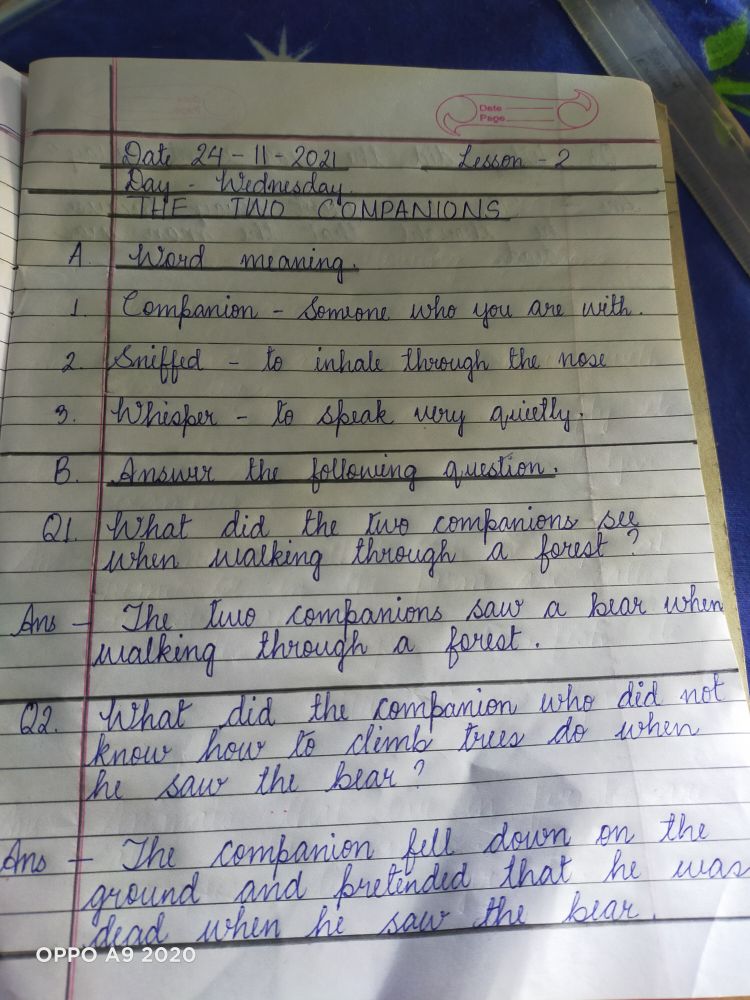 Date
Page
Date 24-11-2021 Lesson - 2
Day - Wednesday.
THE TWO COMPANIONS
A. Word meaning.
1. Companion - Someone who you are with.
2. Sniffed - to inhale through the nose
3. Whisper - to speak very quietly.
B. Answer the following question.
Q1. What did the two companions see
when walking through a forest?
Ans - The two companions saw a bear when
walking through a forest.
Q2. What did the companion who did not
know how to climb trees do when
he saw the bear?
Ans - The companion fell down on the
ground and pretended that he was
dead when he saw the bear.
OPPO A9 2020